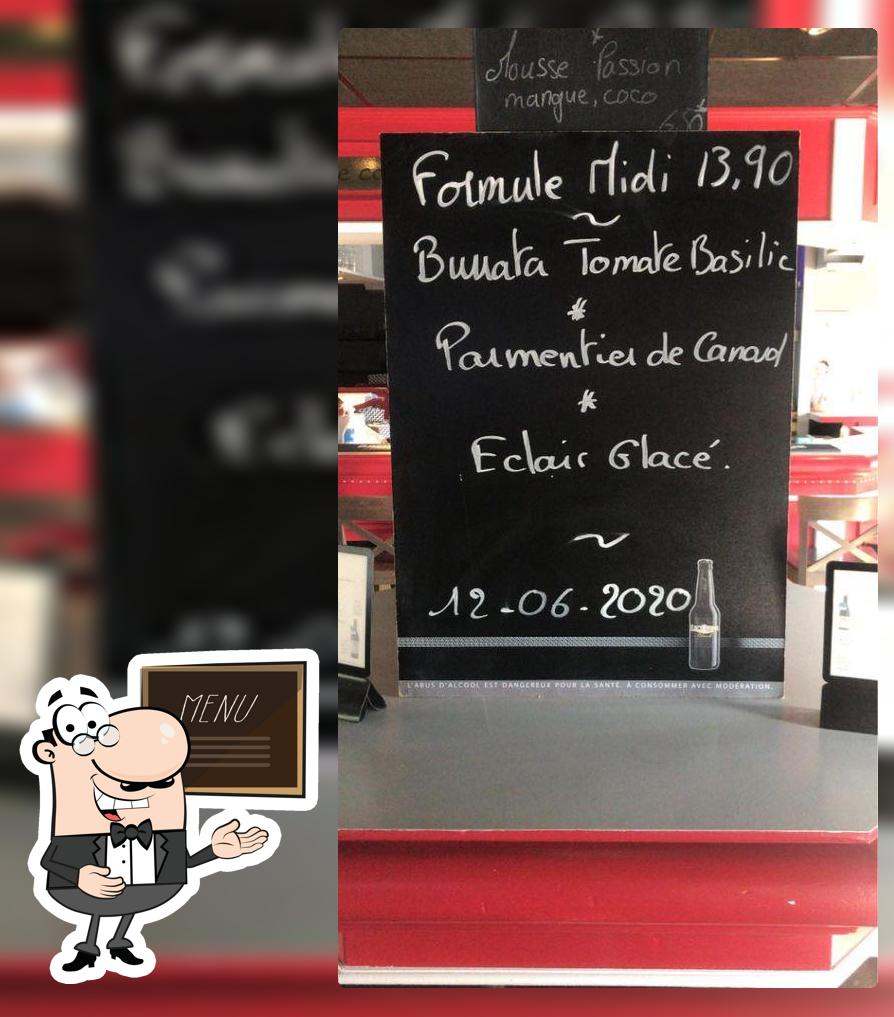 Mousse Passion
mangue, coco
6,50
Formule Midi 13,90
~
Burrata Tomate Basilic
*
Parmentier de Canard
*
Eclair Glacé.
~
12-06-2020
L'ABUS D'ALCOOL EST DANGEREUX POUR LA SANTÉ. À CONSOMMER AVEC MODÉRATION.
MENU